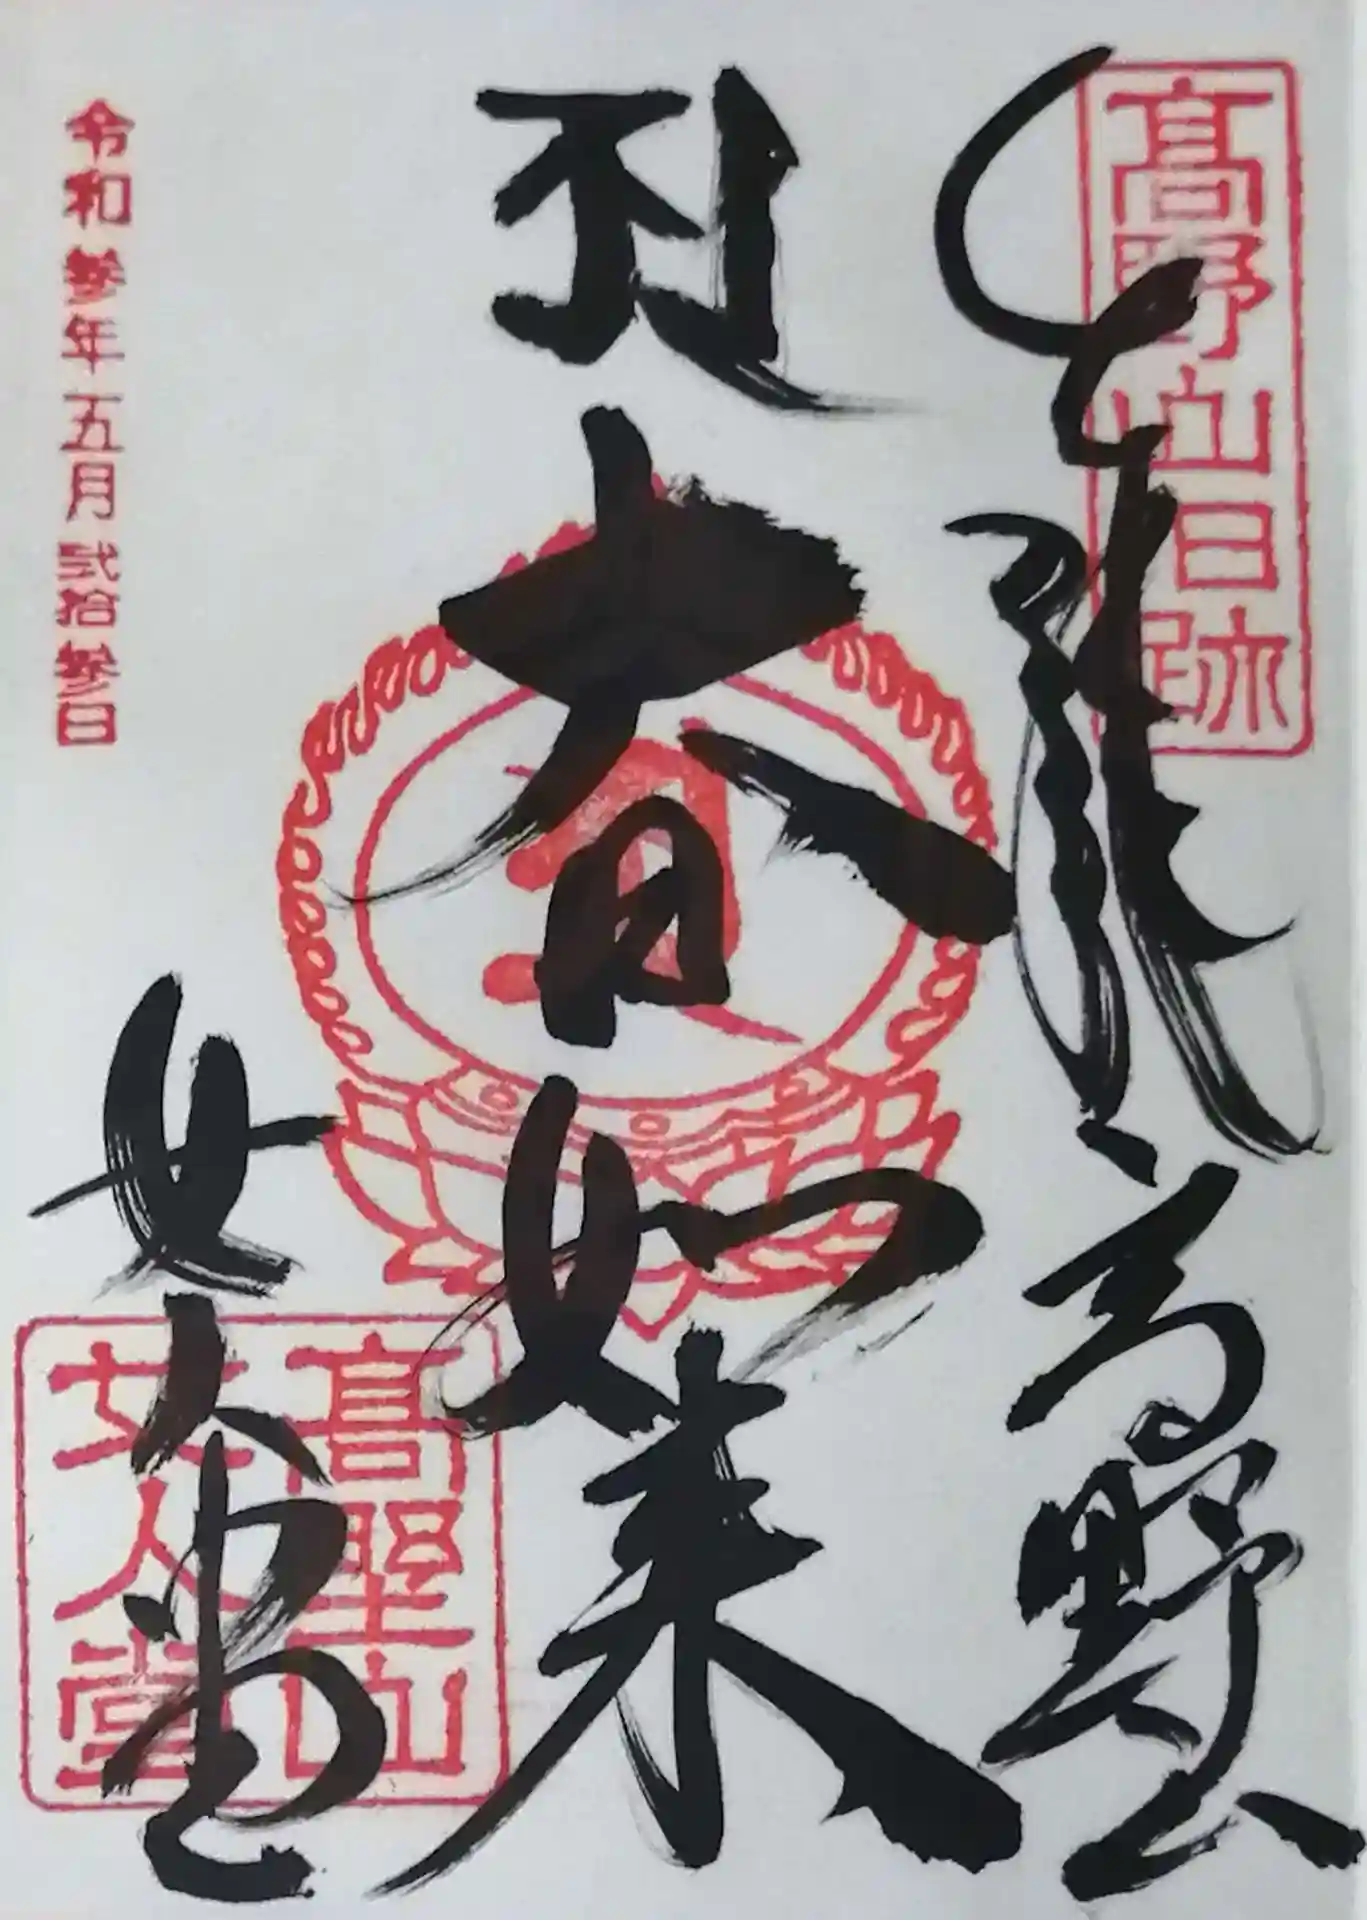 高野山旧跡
高野山
大日如来
女人堂
高野山
女人堂
令和参年五月弐拾参日